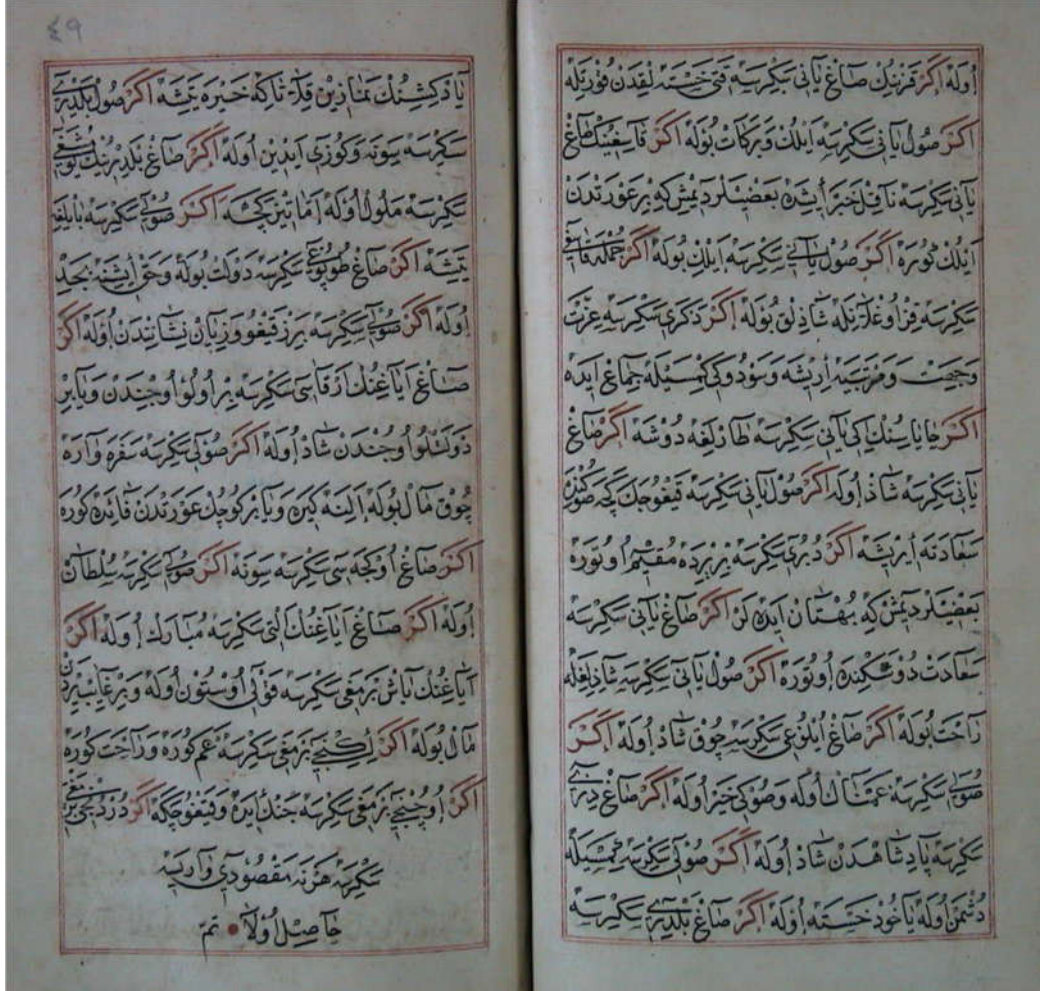 اوله اكر قرنك صاغ ياني سكرسه قتي خسته لقدن قورتله
اكر صول ياني سكرسه ايلك و بركات بوله اكر قاسغينك صاغ
ياني سكرسه ناقل خبر ايشده بعضيلر ديمش كه بر عورتدن
ايلك كوره اكر صول ياني سكرسه ايلك بوله اكر جمله قاسغي
سكرسه قز اوغلانله شاذلق بوله اكر ذكري سكرسه عزت
و جهت و مرتبيه اريشه و سودوكي كمسيله جماع ايده
اكر خاياسنك ايكي ياني سكرسه طارلغه دوشه اكر صاغ
ياني سكرسه شاذ اوله اكر صول ياني سكرسه قيغو جك كجه صوكنده
سعادته ايريشه اكر دبري سكرسه بر يرده مقيم اوتوره
بعضيلر ديمش كه بهتان ايده لر اكر صاغ ياني سكرسه
سعادت دوشكنده اوتوره اكر صول ياني سكرسه شاذلغله
راحت بوله اكر صاغ ايلوغي سكرسه چوق شاذ اوله اكر
صولي سكرسه غمناك اوله و صوكي خير اوله اكر صاغ دزي
سكرسه پادشاهدن شاذ اوله اكر صولي سكرسه كمسيله
دشمن اوله ياخوذ خسته اوله اكر صاغ بلديري سكرسه
٤٩
ياذ كشنك نمازين قلا تاكه خيره يتشه اكر صول بلدري
سكرسه سونه و كوزي ايدين اوله اكر صاغ بلديرنك يومشغي
سكرسه ملول اوله اما تيز كچه اكر صولي سكرسه بايلغه
يتشه اكر صاغ طوپوغي سكرسه دولت بوله و حق ايشنه بجد
اوله اكر صولي سكرسه برز قيغو و زيان نشانندن اوله اكر
صاغ اياغنك ارقاسي سكرسه بر اولو اوجندن و يا بر
دولتلو اوجندن شاذ اوله اكر صولي سكرسه سفره واره
چوق مال بوله النه كيره و يا بر كوچك عورتدن فائده كوره
اكر صاغ اوكجه سي سكرسه سونه اكر صولي سكرسه سلطان
اوله اكر صاغ اياغنك التي سكرسه مبارك اوله اكر
اياغنك باش برمغي سكرسه قولي اوستون اوله و بر غايبيردن
مال بوله اكر ايكنجي برمغي سكرسه غم كوره و راحت كوره
اكر اوچنجي برمغي سكرسه جنك ايده و قيغو چكه اكر دردنجي برمغي
سكرسه هر نه مقصودي وارسه
حاصل اولا تم